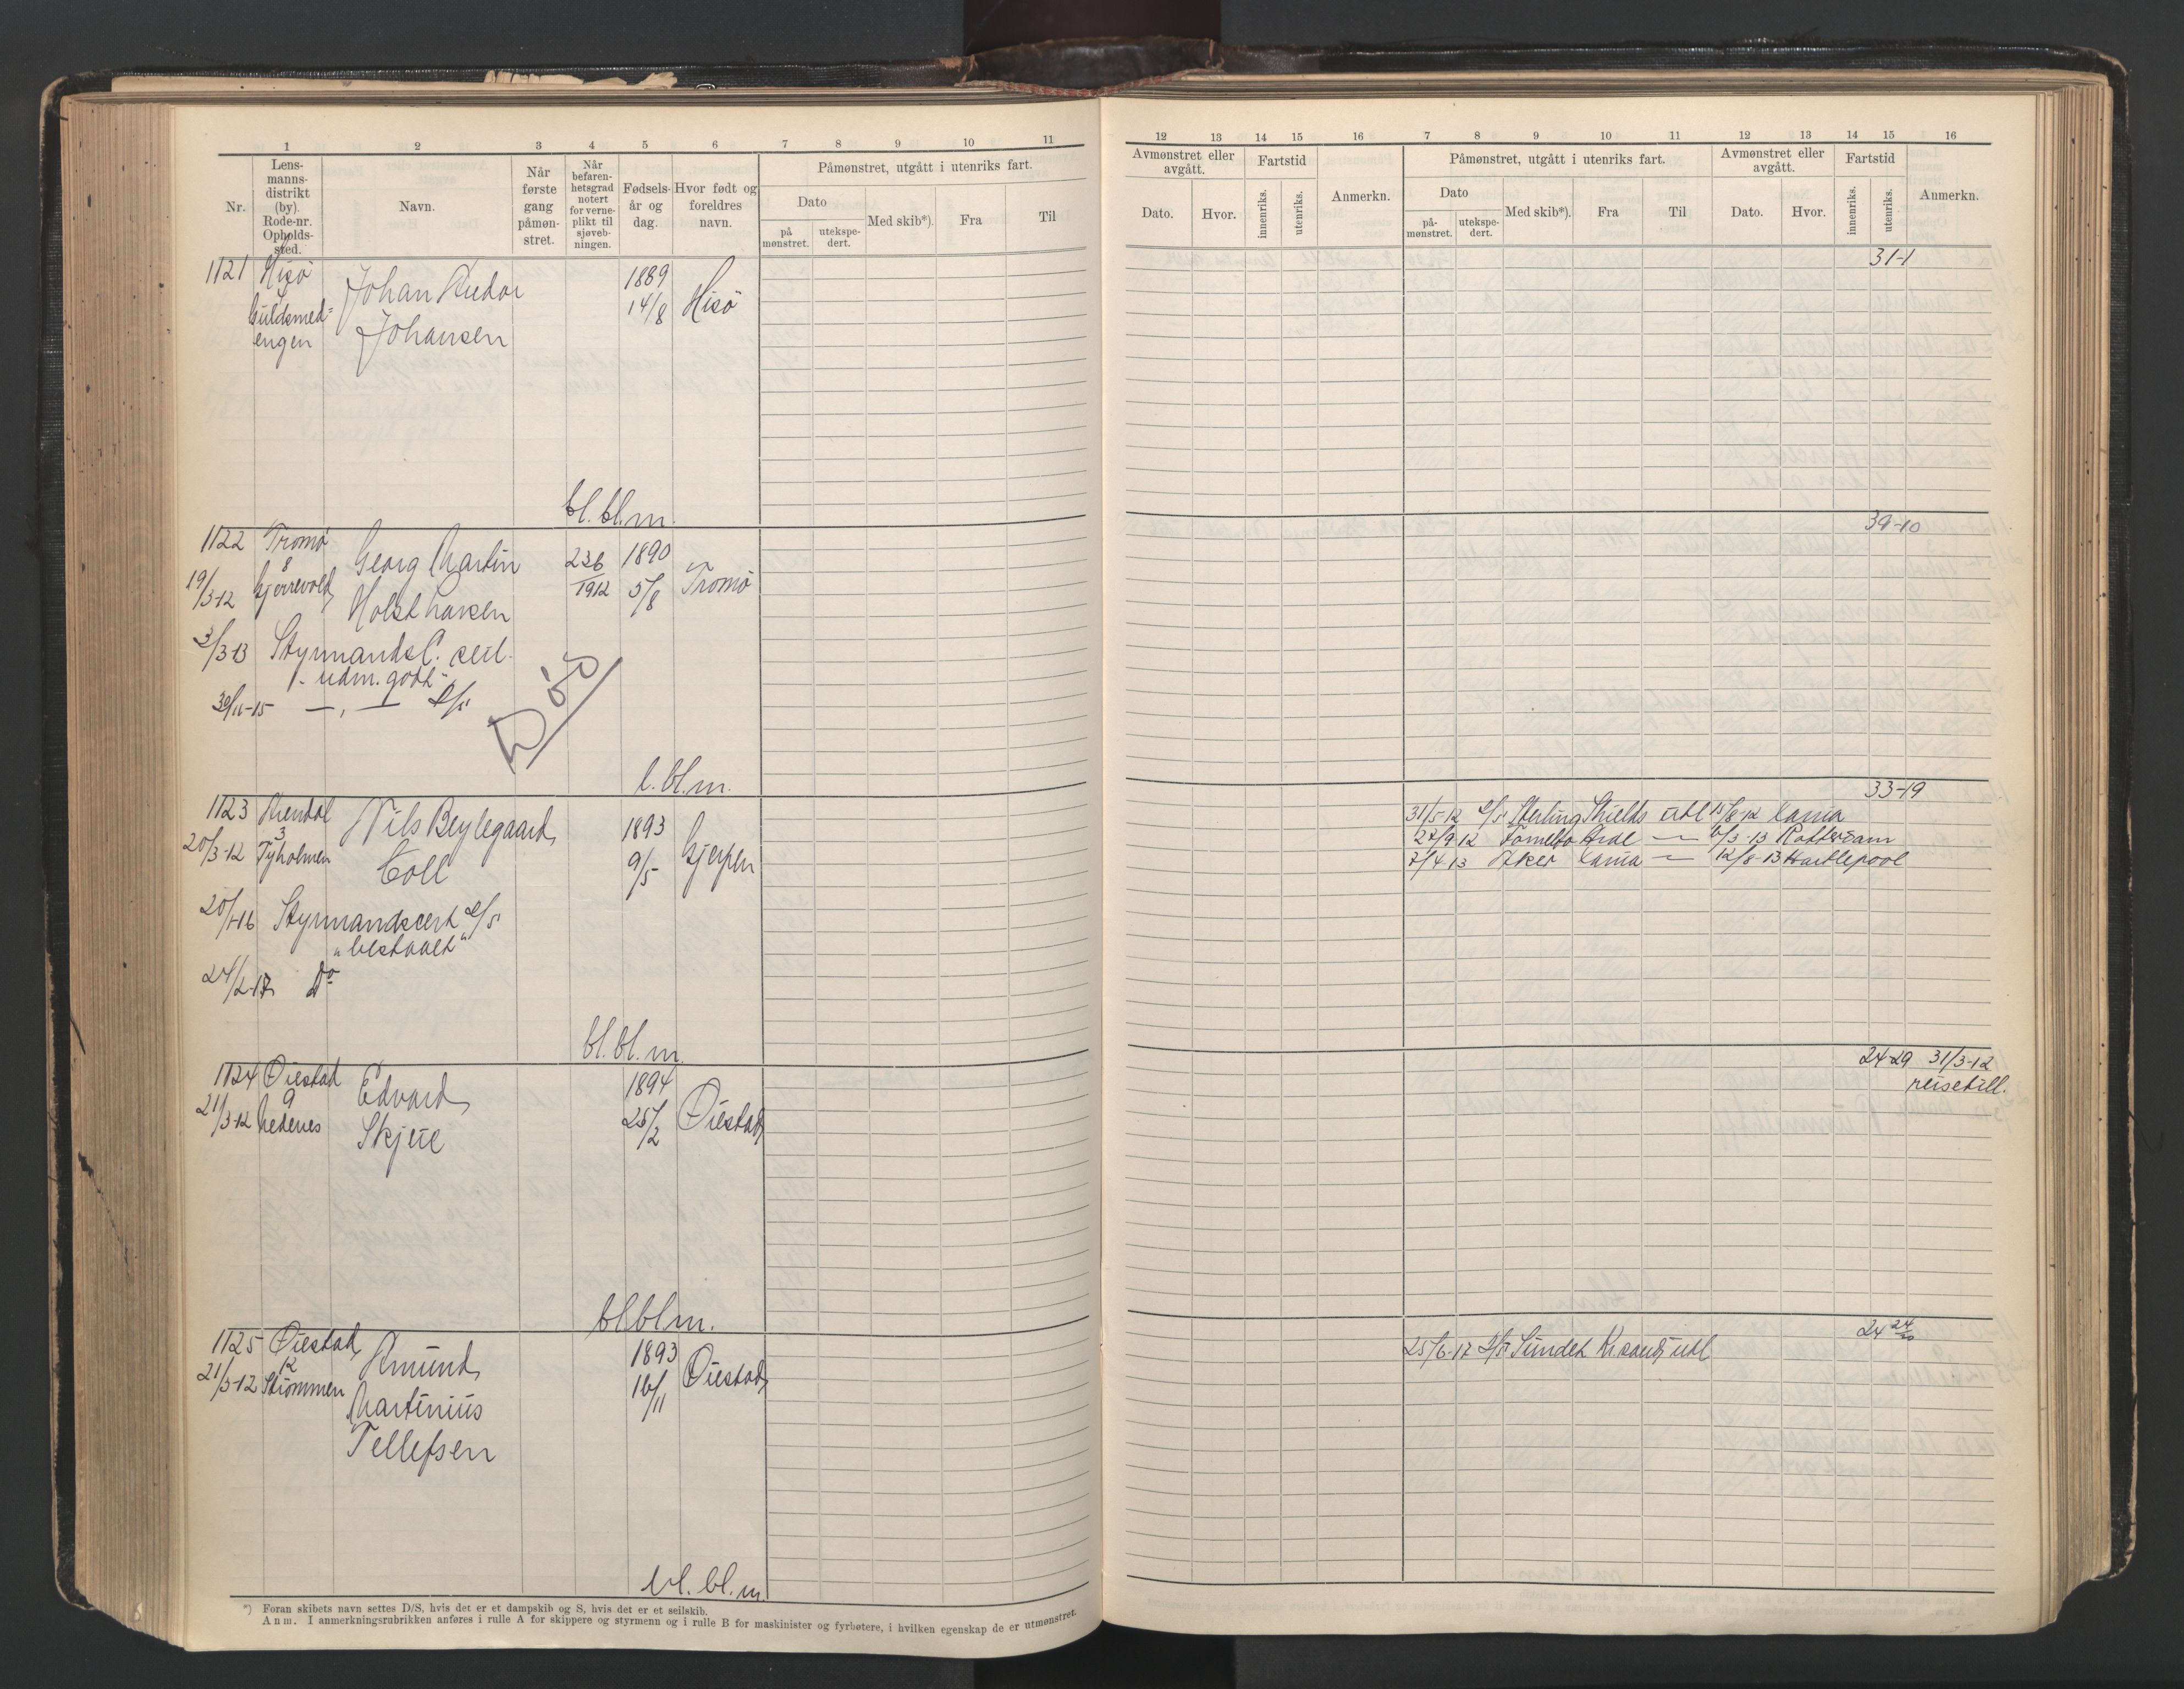 1 2 3 4 5 6 7 8 9 10 11
Nr.
Lens-
manns-
distrikt
(by).
Rode-nr.
Opholds-
sted.
Navn.
Når
første
gang
påmøn-
stret.
Når
befaren-
hetsgrad
notert
for verne-
plikt til
sjøveb-
ningen.
Fødsels-
år og
dag.
Hvor født og
foreldres
navn.
Påmønstret, utgått i utenriks fart.
Dato
på
mønstret.
utekspe-
dert.
Med skib*).
Fra
Til
1121 Hisö
Guldsmed=
engen
Johan
Johansen
1889
14/8
Hisö
bl. bl. m.
1122 Tromö
8
19/3-12
Georg Martin
Holst Larsen
236
1912
1890
5/8
Tromö
3/3-13 Styrmandsc. seil.
"udm. godt"
30/11-15 — „ — d/s
Död
l. bl. m.
1123 Arendal
3
20/3-12 Tyholmen
Nils
Coll
1893
9/5
Gjerpen
20/1-16 Styrmandscert d/s
"bestaaet"
24/2-17 Do
bl. bl. m.
1124 Øiestad
9
21/3-12 Nedenes
Edvard
Skjeie
1894
25/2
Øiestad
bl. bl. m.
1125 Øiestad
12
21/3-12 Strömmen
Amund
Martinius
Tellefsen
1893
16/11
Øiestad
bl. bl. m.
*) Foran skibets navn settes D/S, hvis det er et dampskib og S, hvis det er et seilskib.
Anm. I anmerkningsrubrikken anføres i rulle A for skippere og styrmenn og i rulle B for maskinister og fyrbøtere, i hvilken egenskap de er utmønstret.
12 13 14 15 16 7 8 9 10 11 12 13 14 15 16
Avmønstret eller
avgått.
Dato.
Hvor.
Fartstid
innenriks.
utenriks.
Anmerkn.
Påmønstret, utgått i utenriks fart.
Dato
på-
mønstret.
utekspe-
dert.
Med skib*).
Fra
Til
Avmønstret eller
avgått.
Dato.
Hvor.
Fartstid
innenriks.
utenriks.
Anmerkn.
31-1
39-10
33-19
31/5-12 d/s Sterling Shields utl 15/8-12 Xania
27/9-12 — 6/3-13 Rotterdam
7/4-13 Aker Xania — 12/8-13 Hartlepool
24-29 31/3-12
reisetill.
24 24/20
25/6-17 d/s Sundet Krsand utl